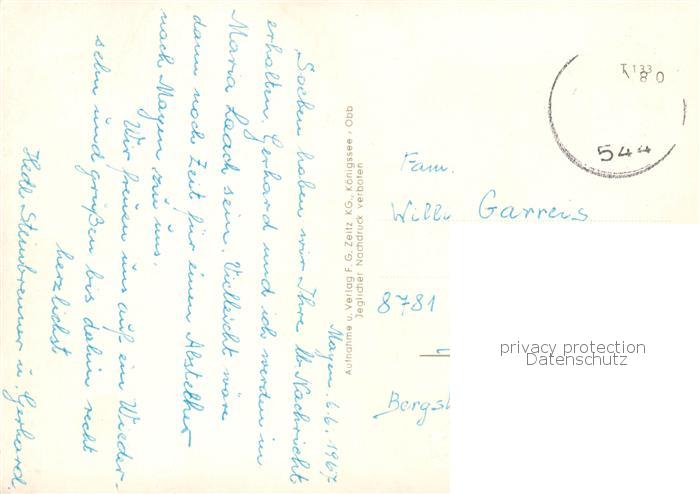 Mayen, 6.6.1967
Soeben haben wir Ihre lb. Nachricht
erhalten. Gerhard und ich werden in
Maria Laach sein. Vielleicht wäre
dann noch Zeit für einen Abstecher
nach Mayen zu uns.
Wir freuen uns auf ein Wieder-
sehn und grüßen bis dahin recht
herzlichst
Hedl. Steinbrenner u. Gerhard.
Aufnahme u. Verlag F. G. Zeitz KG., Königssee / Obb
Jeglicher Nachdruck verboten
T 133
80
544
Fam.
Willi Garreis
8781
Bergst
privacy protection
Datenschutz